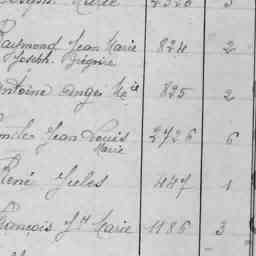 Joseph Marie 2320 3
Raymond Jean Marie 824 2
Joseph. Grégoire
Antoine Ange Mie 825 2
Emile Jean Louis 2726 6
Marie
René Jules 447 1
François Jh Marie 1186 3